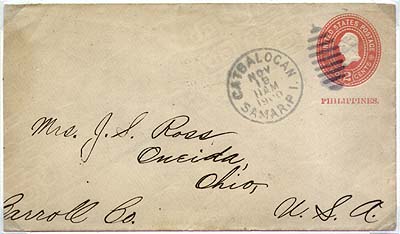 UNITED STATES POSTAGE
2 CENTS 2
PHILIPPINES.
CATBALOGAN
NOV
18
11AM
1900
SAMAR. P. I.
Mrs. J. S. Ross
Oneida,
Ohio,
Carroll Co. U. S. A.